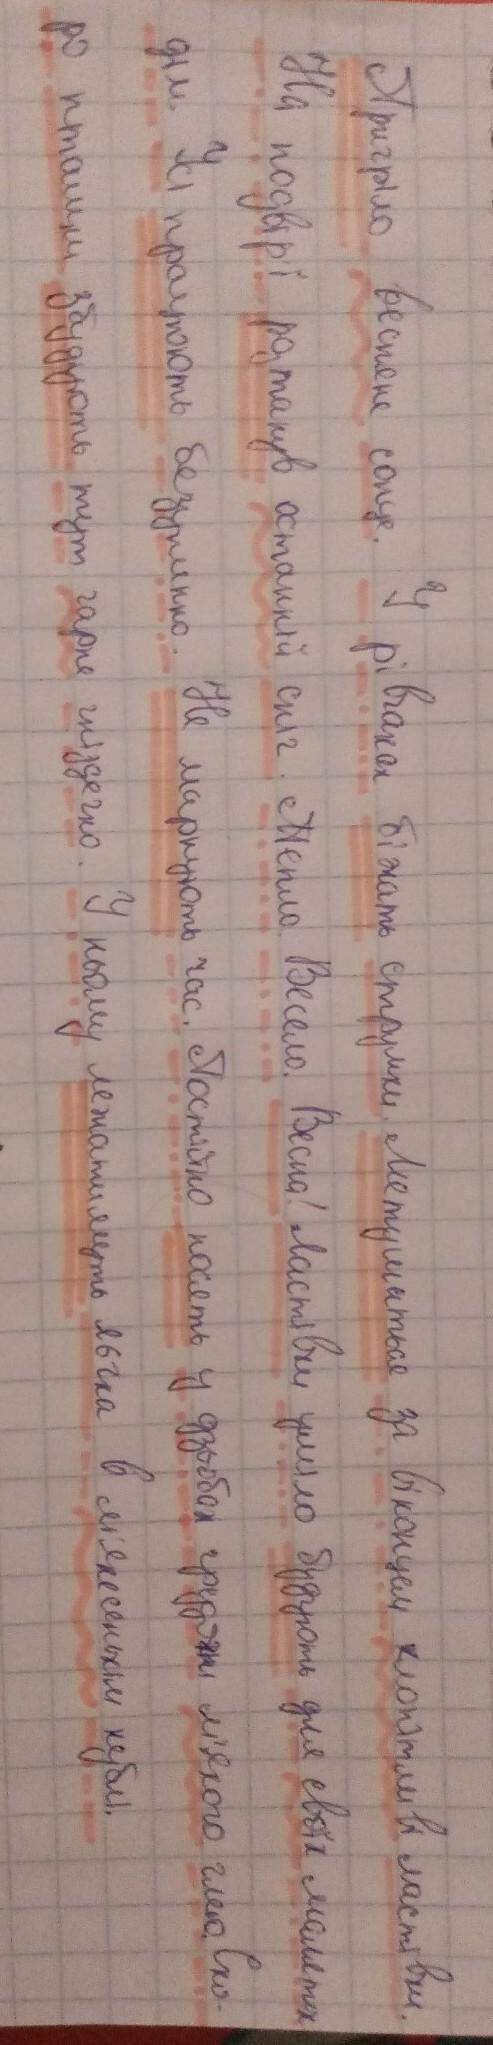 Пригріло весняне сонце. У рівчаках біжать струмки. Метушаться за віконцем клопітливі ластівки.
На подвірі розтанув останній сніг. Тепло. Весело. Весна! Ластівки уміло будують для своїх малят
дім. Усі працюють безупинно. Не марнують час. Постійно носять у дзьобах грудочки м'якого глею. Ско-
ро пташки збудують тут гарне гніздечко. У ньому лежатимуть яєчка в м'якесенькім кублі.